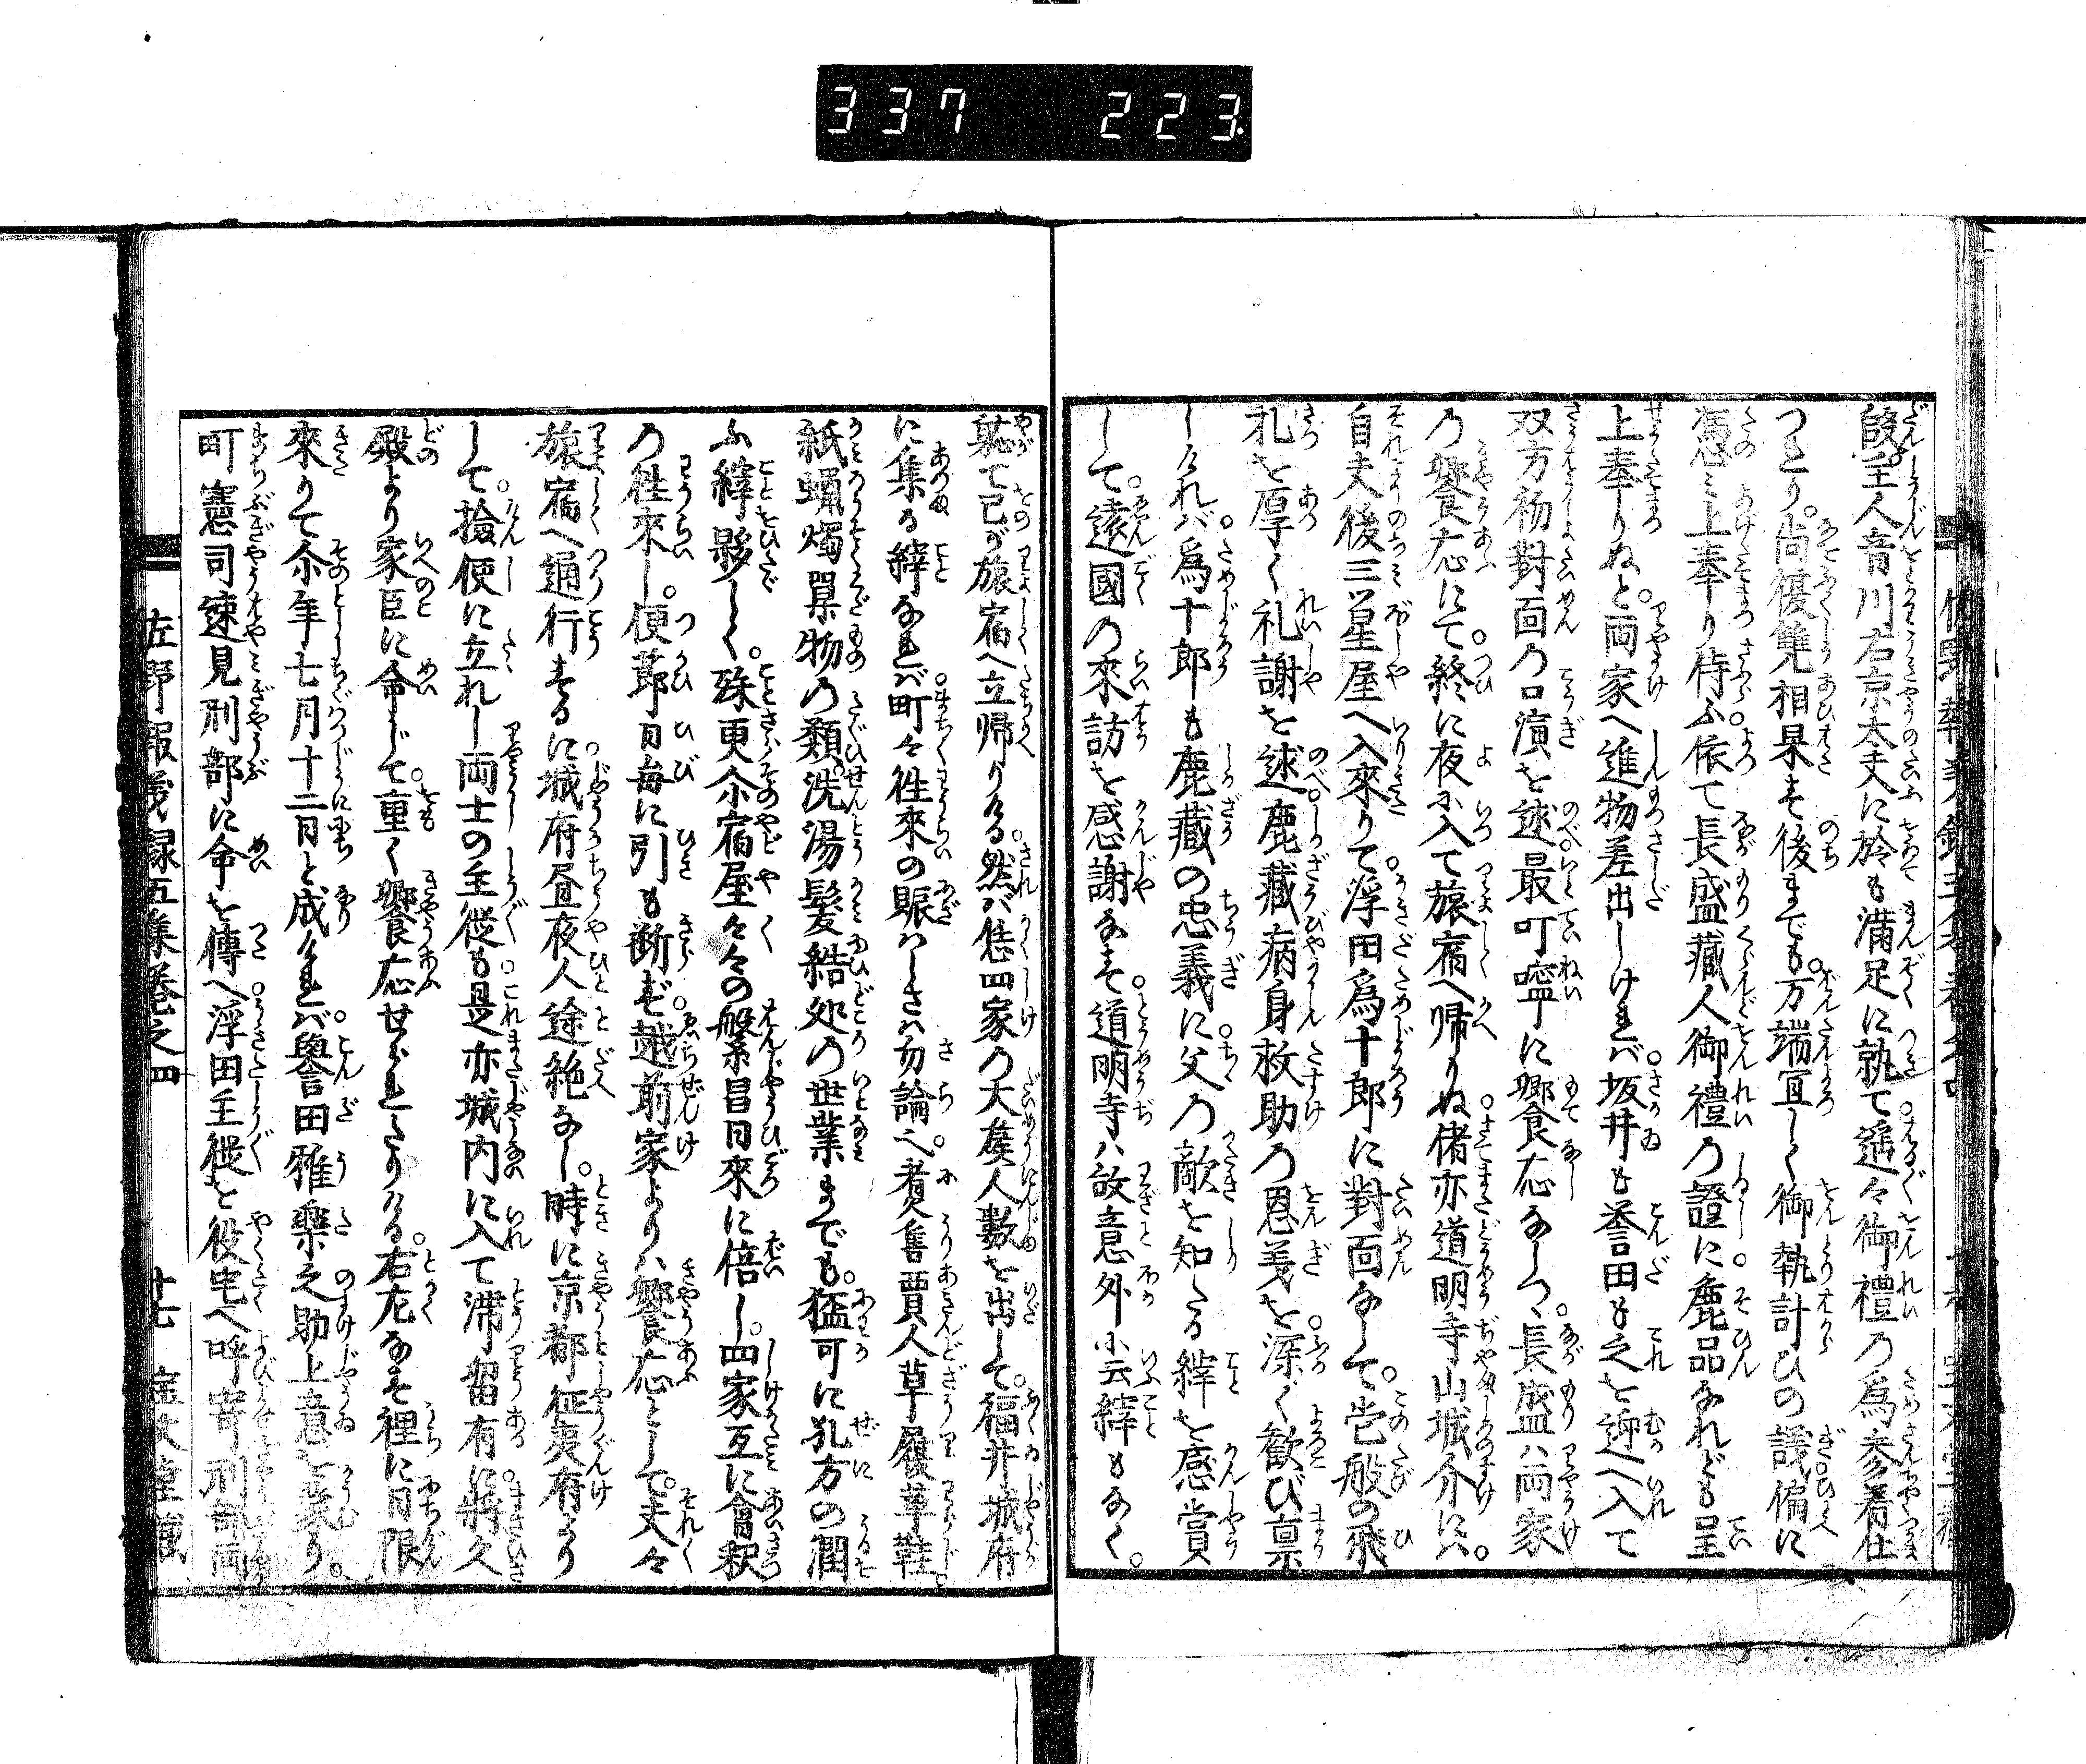 337 223
段。主人音川右京太夫に於も満足に執て遥々御禮の為参着仕
つたり。尚復讐相果せ後までも。万端宜しく御執計ひの議偏に
憑ミ上奉り侍ふ依て長盛藏人御禮の證に麁品なれども呈
上奉りぬと。両家へ進物差出しけれバ。坂井も誉田も之を迎へ入て
双方初對面の口演を述最叮嚀に饗応なしつ。長盛ハ両家
の饗応にて。終に夜に入て旅宿へ帰りぬ偖亦道明寺山城介にハ。
自夫後三ツ星屋へ入來りて。浮田為十郎に對面なして。这般の飛
札を厚く礼謝を述鹿藏病身救助の恩義を深く歓び禀
しけれバ。為十郎も鹿藏の忠義に父の敵を知たる縡を感賞
して。遠國の來訪を感謝なせ。道明寺ハ故意外に云縡もなく。
聴て己が旅宿へ立帰りける然バ恁四家の大矦人數を出して。福井城府
に集る縡なれバ。町々徃來の賑ハしさハ勿論へ。煑售賈人草履草鞋
紙蝋燭菓物の類洗湯髪結処の世業までも。猛可に孔方の潤
ふ縡夥しく。殊更尒宿屋々々の繁昌日來に倍し。四家互に會釈
の徃來し。便莭日毎に引も断ず。越前家よりハ饗応として。夫々
旅宿へ通行するに城府昼夜人途絶なし。時に京都征夷府より
して。撿使に立れし両士の主従も是亦城内に入て滞留有に將久
殿より家臣に命じて。重く饗応せられたりける。右左なせ裡に日限
來りて尒年七月十二日と成けれバ。誉田雅樂之助上意を蒙り。
町憲司速見刑部に命を傳へ浮田主従を役宅へ呼寄刑部両
左野報義録五集巻之四 廿七